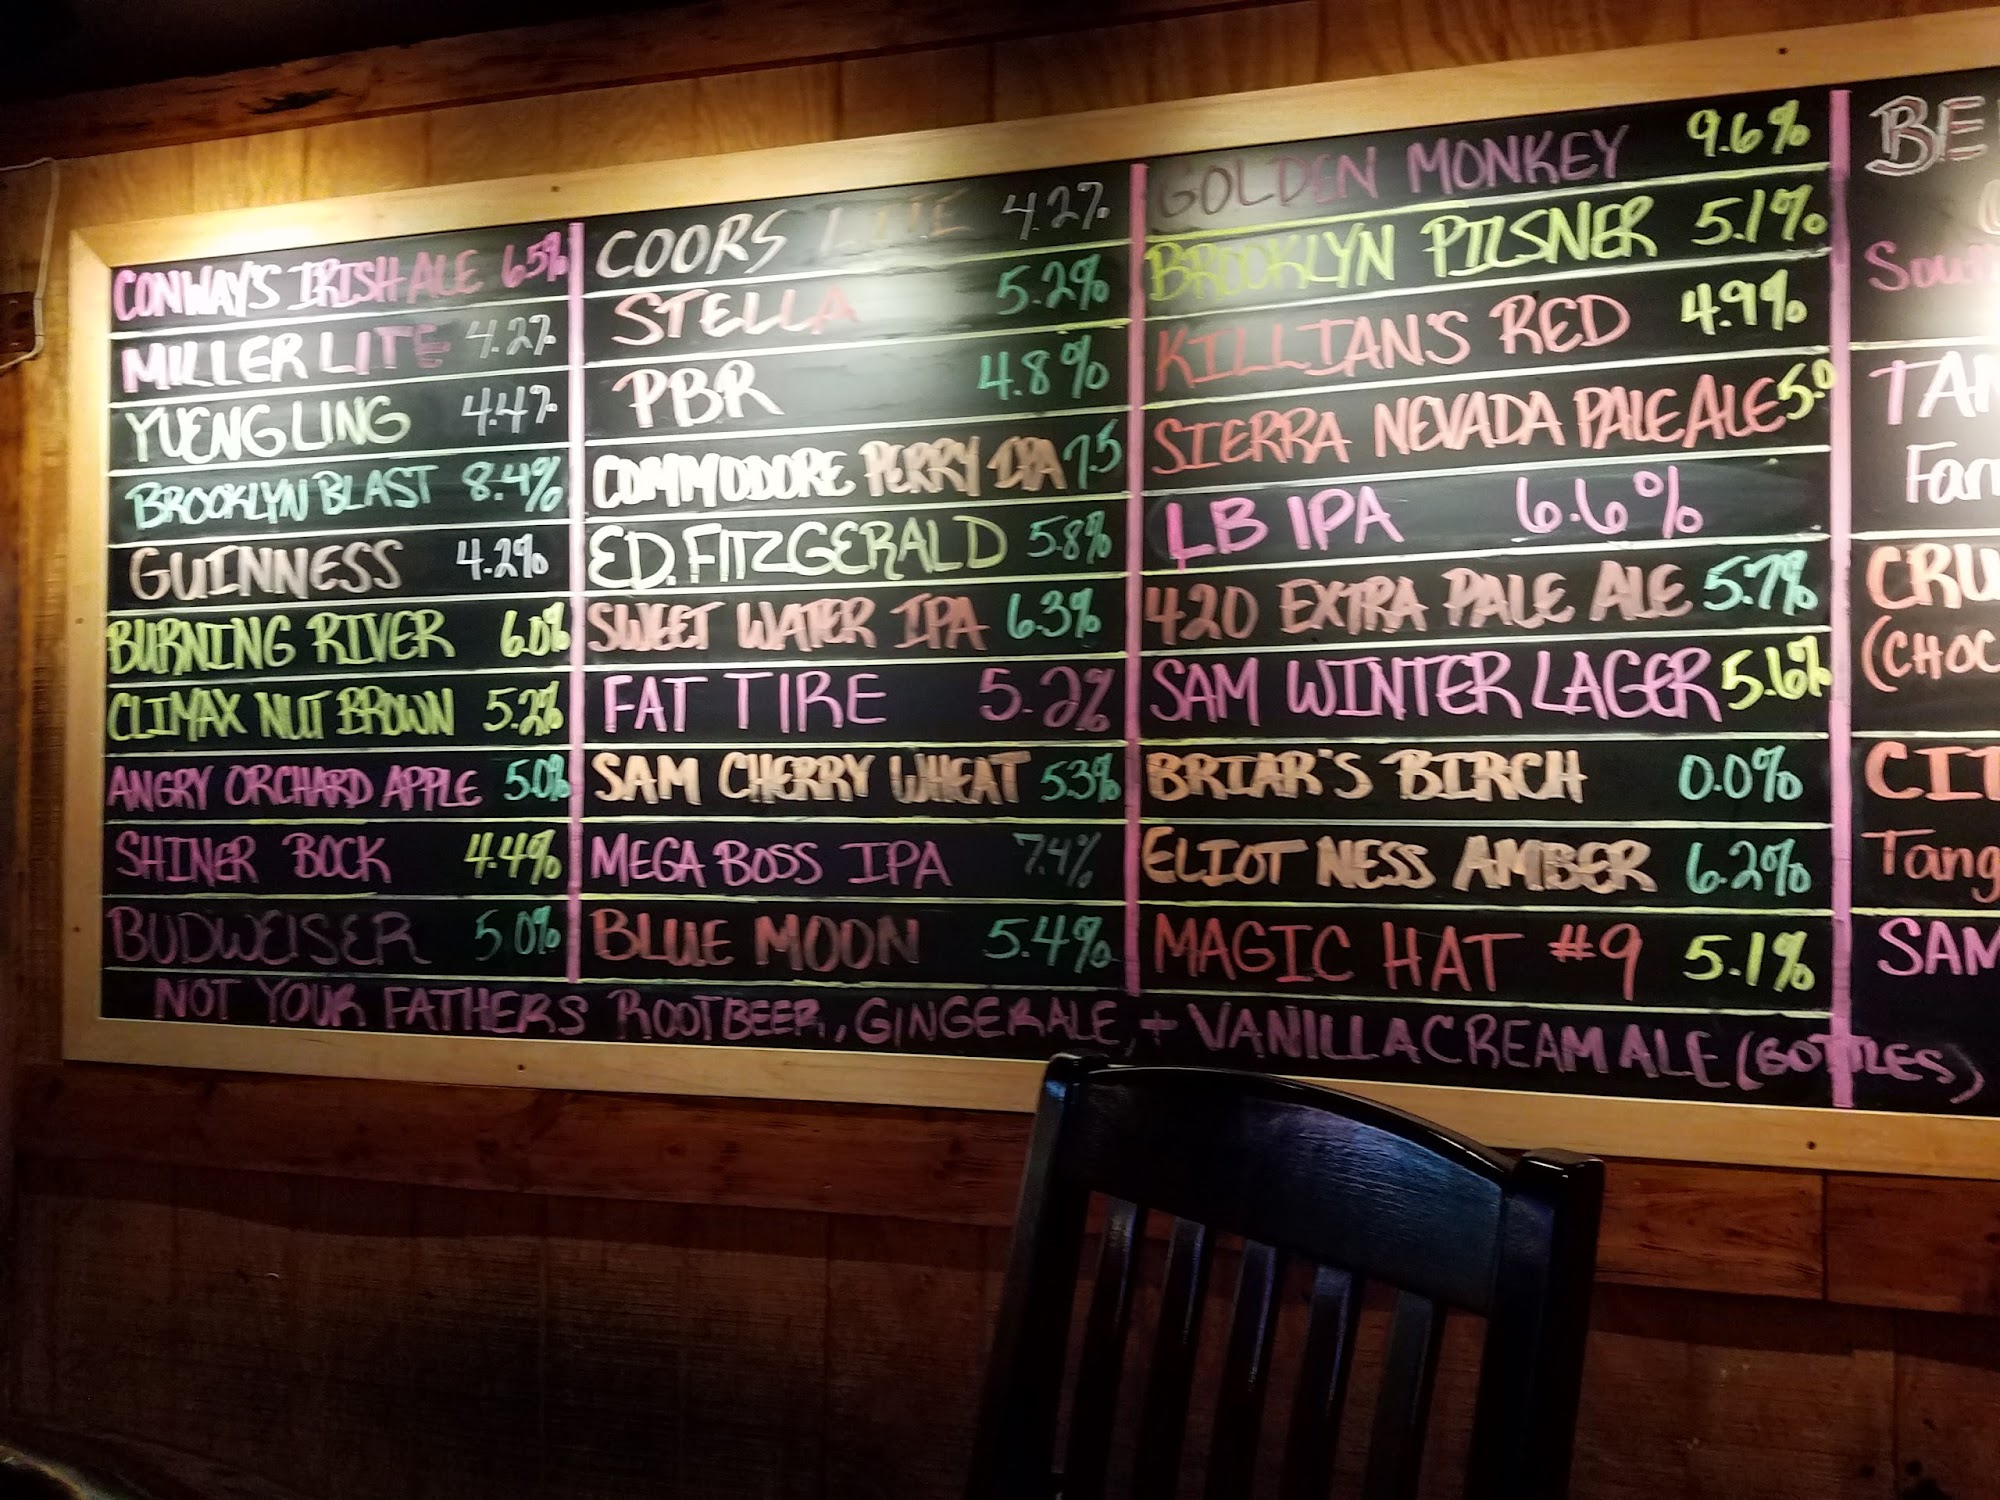 CONWAY'S IRISH ALE 6.5%
MILLER LITE 4.2%
YUENGLING 4.4%
BROOKLYN BLAST 8.4%
GUINNESS 4.2%
BURNING RIVER 6.0%
CLIMAX NUT BROWN 5.2%
ANGRY ORCHARD APPLE 5.0%
SHINER BOCK 4.4%
BUDWEISER 5.0%
COORS LITE 4.2%
STELLA 5.2%
PBR 4.8%
COMMODORE PERRY IPA 7.5
ED. FITZGERALD 5.8%
SWEET WATER IPA 6.3%
FAT TIRE 5.2%
SAM CHERRY WHEAT 5.3%
MEGA BOSS IPA 7.4%
BLUE MOON 5.4%
GOLDEN MONKEY 9.6%
BROOKLYN PILSNER 5.1%
KILLIAN'S RED 4.9%
SIERRA NEVADA PALE ALE 5.0
LB IPA 6.6%
420 EXTRA PALE ALE 5.7%
SAM WINTER LAGER 5.6%
BRIAR'S BIRCH 0.0%
ELIOT NESS AMBER 6.2%
MAGIC HAT #9 5.1%
NOT YOUR FATHERS ROOTBEER, GINGERALE, + VANILLA CREAM ALE (BOTTLES)
BE
TAN
Far
CRU
(CHOC
CIT
Tang
SAM